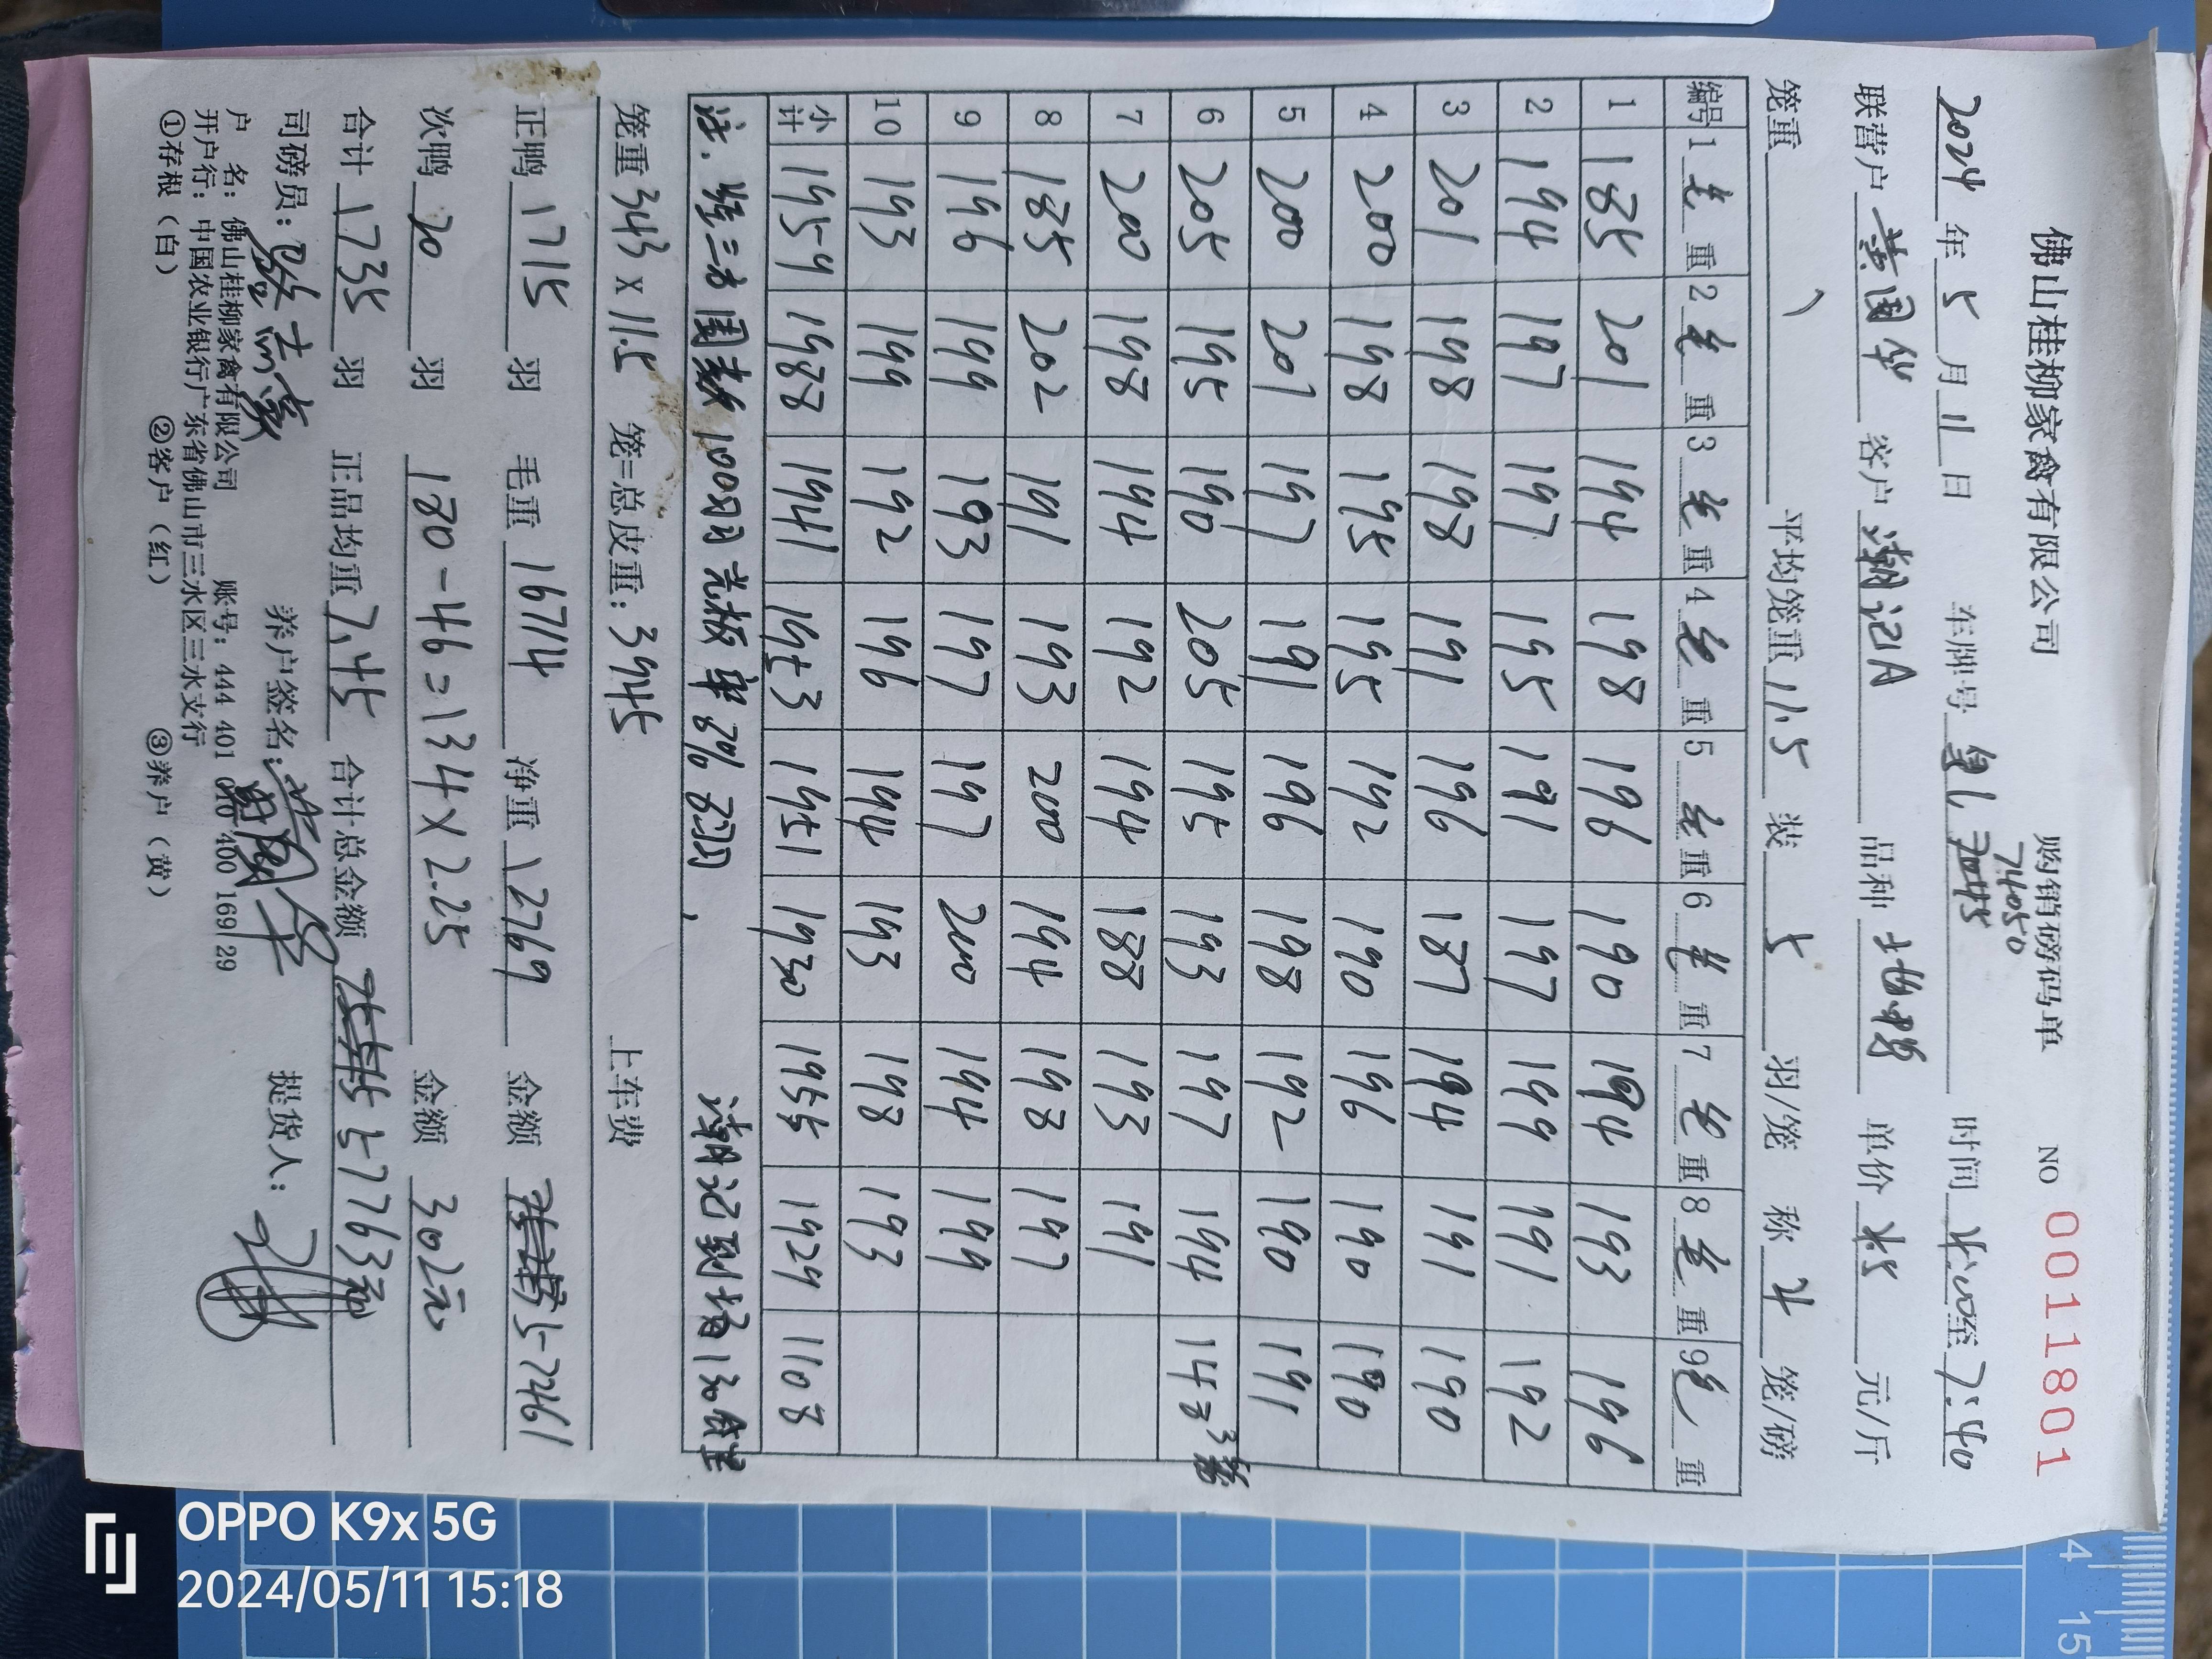 佛山桂柳家禽有限公司 购销磅码单 NO 0011801
74050
2024 年 5 月 11 日 车牌号 时间 至 7:40
联营户 黄国华 客户 潮记A 品种 单价 元/斤
笼重 平均笼重 11.5 装 5 羽/笼 称 笼/磅
编号 1 毛 重 2 毛 重 3 毛 重 4 毛 重 5 毛 重 6 毛 重 7 毛 重 8 毛 重 9 毛 重
1 185 201 194 198 196 190 194 193 196
2 194 197 197 195 191 197 199 191 192
3 201 198 198 191 196 187 194 191 190
4 200 198 195 195 192 190 196 190 190
5 200 201 197 191 196 198 192 190 191
6 205 195 190 205 195 193 197 194 149 3笼
7 200 198 194 192 194 188 193 191
8 185 202 191 193 200 194 198 197
9 196 199 193 197 197 200 194 199
10 193 199 192 196 194 193 198 193
小计 1959 1988 1941 1953 1951 1930 1955 1929 1108
注. 第三方 100羽 光板率8% 潮记到场
笼重 343 x 11.5 笼=总皮重: 3945 上车费
正鸭 1715 羽 毛重 16714 净重 12769 金额 57461
次鸭 20 羽 180-46=134×2.25 金额 302元
合计 1735 羽 正品均重 7.45 合计总金额 57763元
司磅员: 养户签名: 黄国华 提货人:
户 名: 佛山桂柳家禽有限公司 账号: 444 401 010 400 169 29
开户行: 中国农业银行广东省佛山市三水区三水支行
①存根（白） ②客户（红） ③养户（黄）
4
15
OPPO K9x 5G
2024/05/11 15:18